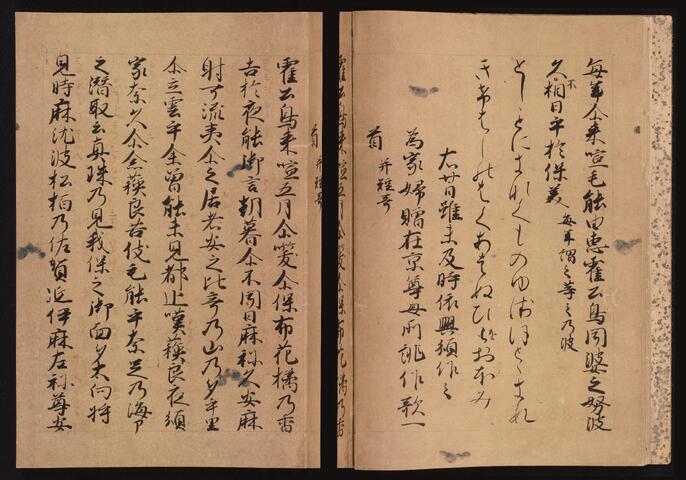 毎年尓来喧毛能由恵霍公鳥聞婆之努波
久不相日乎於保美 毎年謂之等之乃波
としことにきなくものゆゑほとゝきす
きけはしのはくあはぬひをおほみ
右廿日雖未及時依興預作之
為家婦贈在京尊母所誂作歌一
首 并短哥
霍公鳥来喧五月尓咲尓保布花橘乃香
首 并短哥
霍公鳥来喧五月尓咲尓保布花橘乃香
吉於夜能御言朝暮尓不聞日麻祢久安麻
射可流夷尓之居者安之比奇乃山乃多乎里
尓立雲乎余曽能未見都追嘆蘇良夜須
家奈久尓念蘇良苦伎毛能乎奈呉乃海部
之潜取云真珠乃見我保之御面多太向将
見時麻泥波松柏乃佐賀延伊麻左祢尊安